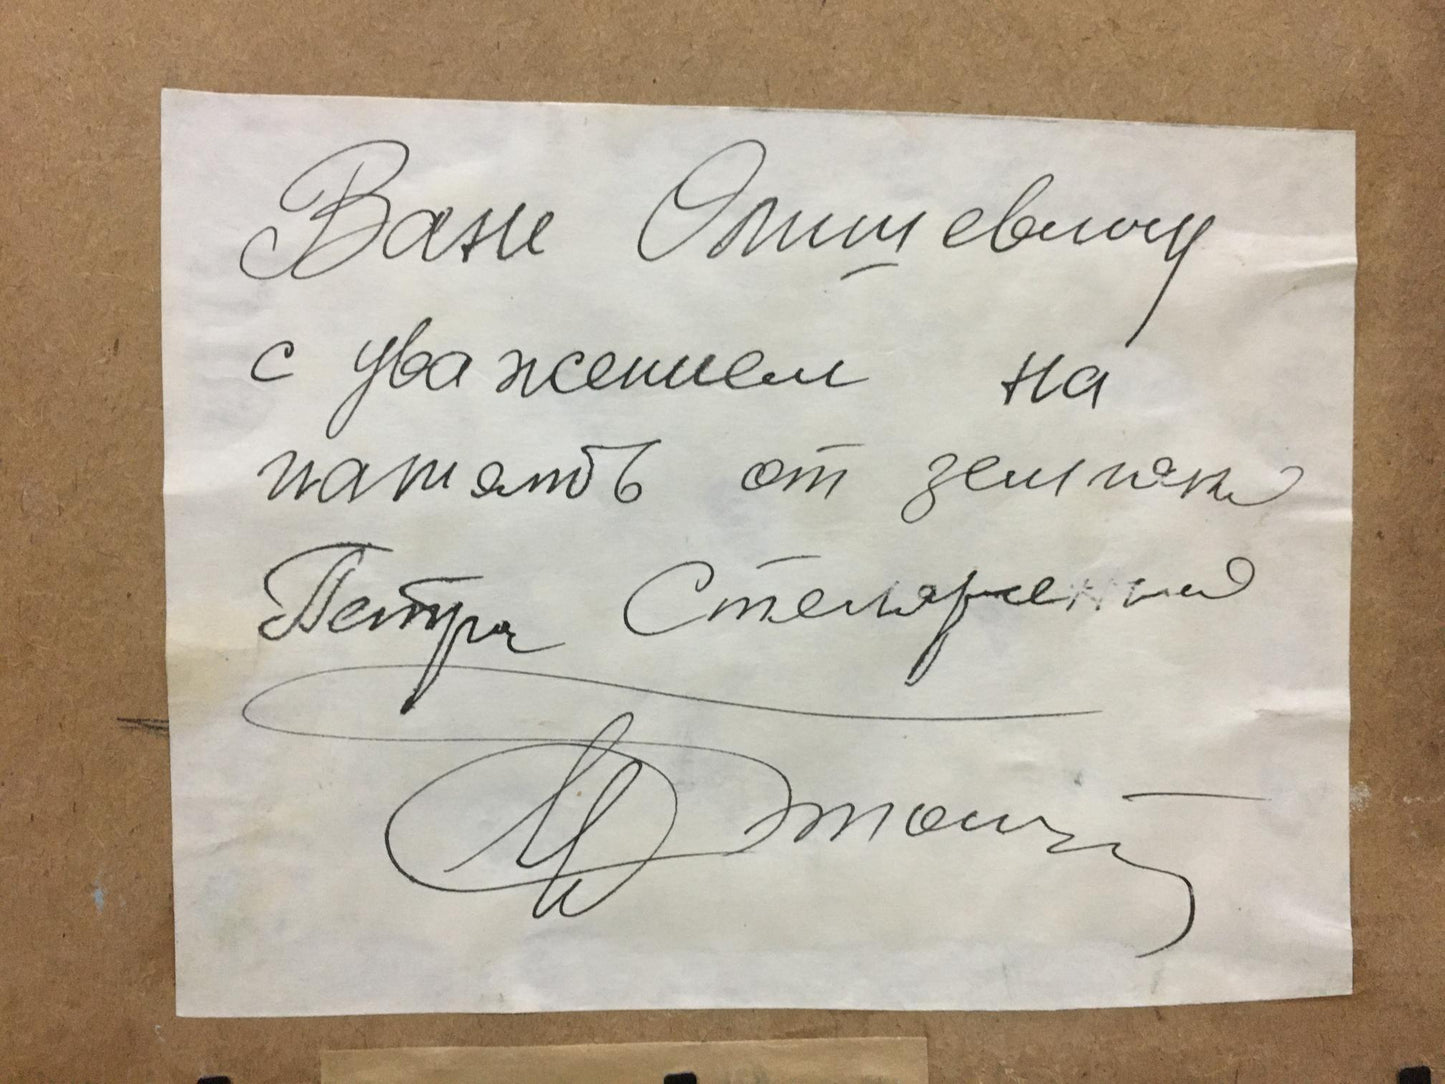 Ване Онищевлочу
с уважением на
память от земляка
Петра Столяренка